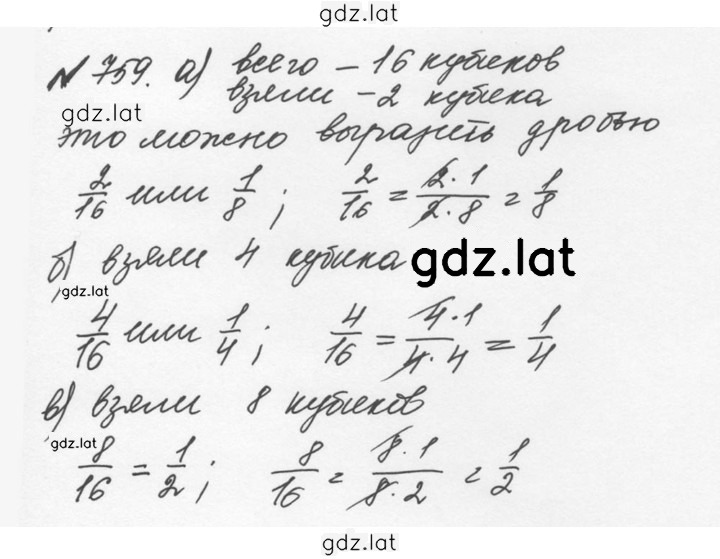 gdz.lat
№ 759. а) всего – 16 кубиков
взяли – 2 кубика
gdz.lat
это можно выразить дробью
2/16 или 1/8; 2/16 = 2·1/2·8 = 1/8
б) взяли 4 кубика
gdz.lat
gdz.lat
4/16 или 1/4; 4/16 = 4·1/4·4 = 1/4
в) взяли 8 кубиков
gdz.lat
8/16 = 1/2; 8/16 = 8·1/8·2 = 1/2
gdz.lat